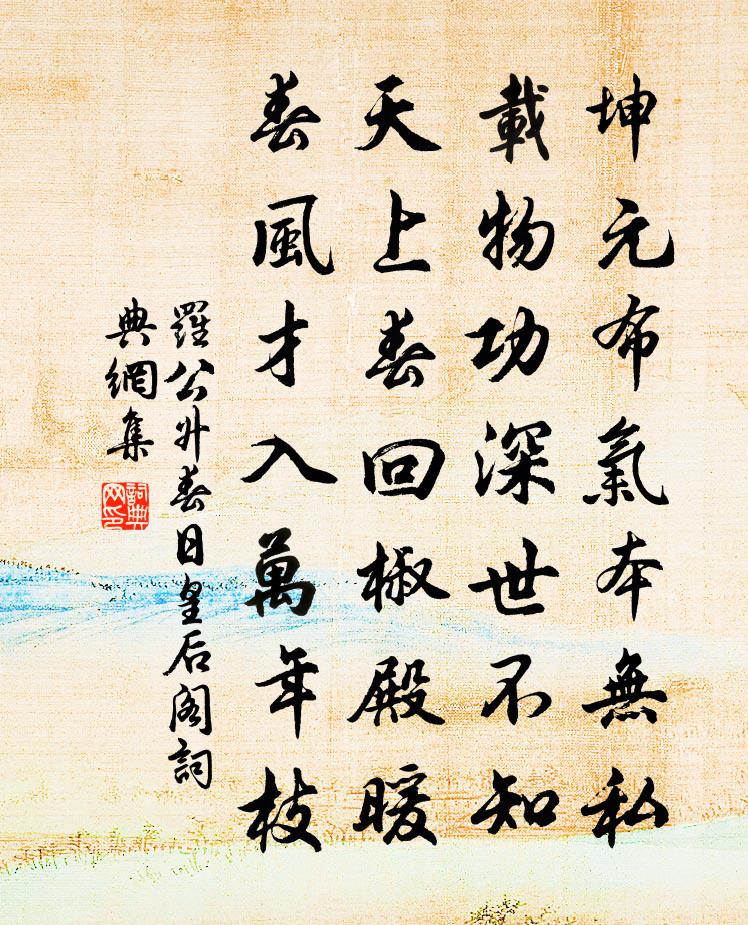 坤元布氣本無私
載物功深世不知
天上春回椒殿暖
春風才入萬年枝
羅公升春日皇后閣詞
典網集
詞典網印